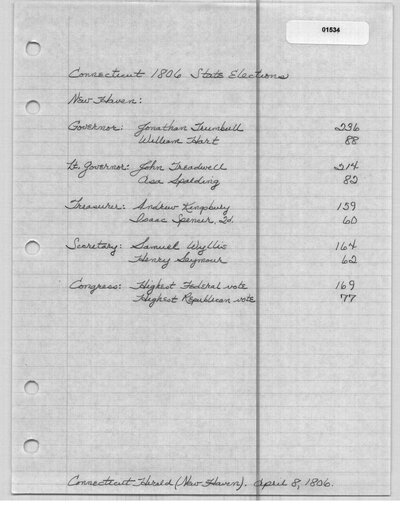 01534
Connecticut 1806 State Elections
New Haven:
Governor: Jonathan Trumbull 236
William Hart 88
Lt. Governor: John Treadwell 214
Asa Spalding 82
Treasurer: Andrew Kingsbury 159
Isaac Spencer, 2d. 60
Secretary: Samuel Wyllis 164
Henry Seymour 62
Congress: Highest Federal vote 169
Highest Republican vote 77
Connecticut Herald (New Haven). April 8, 1806.